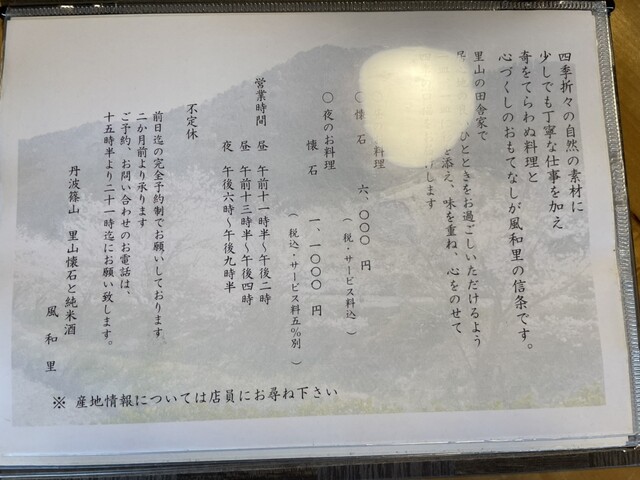 四季折々の自然の素材に
少しでも丁寧な仕事を加え
奇をてらわぬ料理と
心づくしのおもてなしが風和里の信条です。
里山の田舎家で
ひとときをお過ごしいただけるよう
を添え、味を重ね、心をのせて
します
料理
〇懐石 六、〇〇〇円
(税・サービス料込)
〇夜のお料理
懐石 一、一〇〇〇円
(税込・サービス料五%別)
営業時間 昼 午前十一時半~午後二時
昼 午前十三時半~午後四時
夜 午後六時~午後九時半
不定休
前日迄の完全予約制でお願いしております
二か月前より承ります
ご予約、お問い合わせのお電話は、
十五時半より二十一時迄にお願い致します。
丹波篠山 里山懐石と純米酒
風和里
※ 産地情報については店員にお尋ね下さい